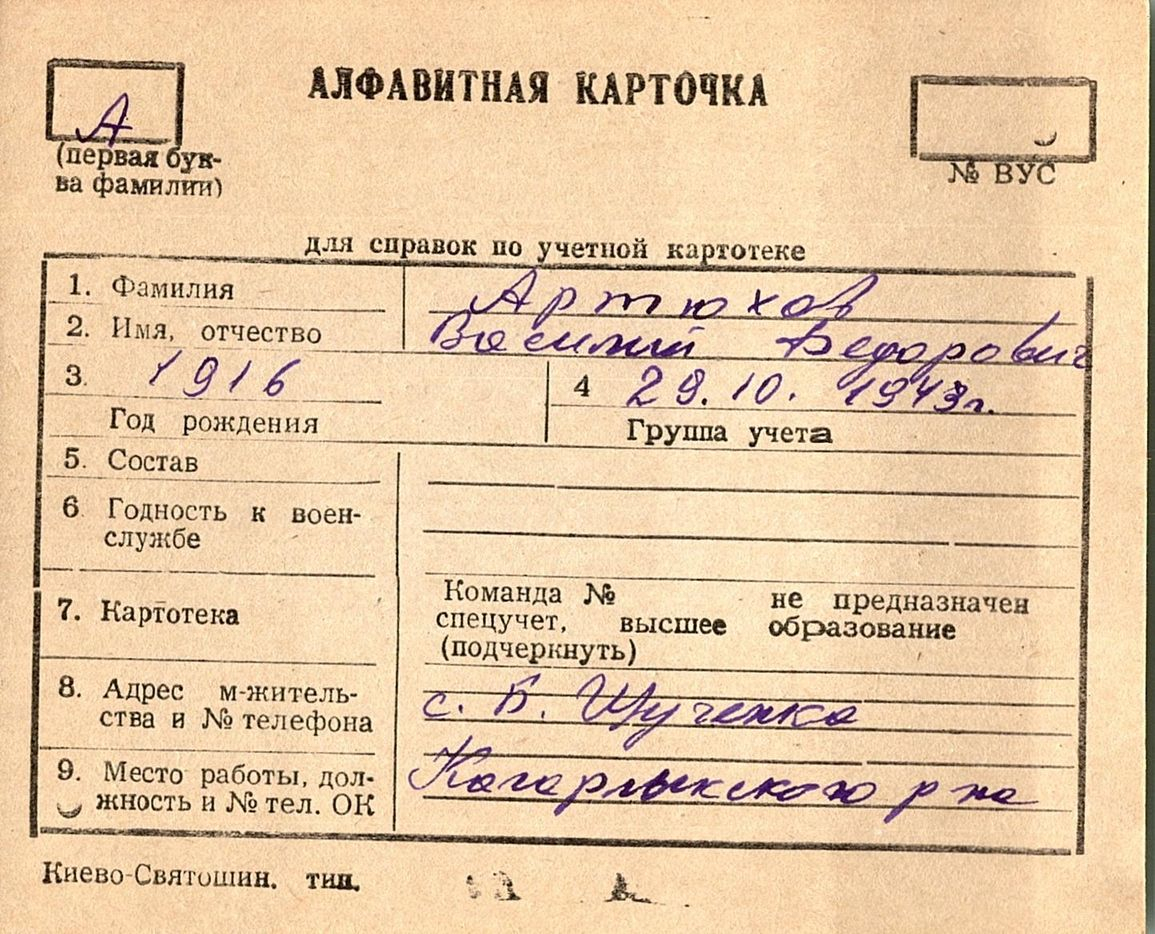 АЛФАВИТНАЯ КАРТОЧКА
А
(первая бук-
ва фамилии)
№ ВУС
для справок по учетной картотеке
1. Фамилия Артюхов
2. Имя, отчество Василий Федорович
3. 1916
Год рождения
4 29.10. 1943г.
Группа учета
5. Состав
6 Годность к воен-
службе
7. Картотека
Команда № не предназначен
спецучет, высшее образование
(подчеркнуть)
8. Адрес м-житель-
ства и № телефона
с. Б. Щученка
9. Место работы, дол-
жность и № тел. ОК
Кагарлыкского р на
Киево-Святошин. тип.